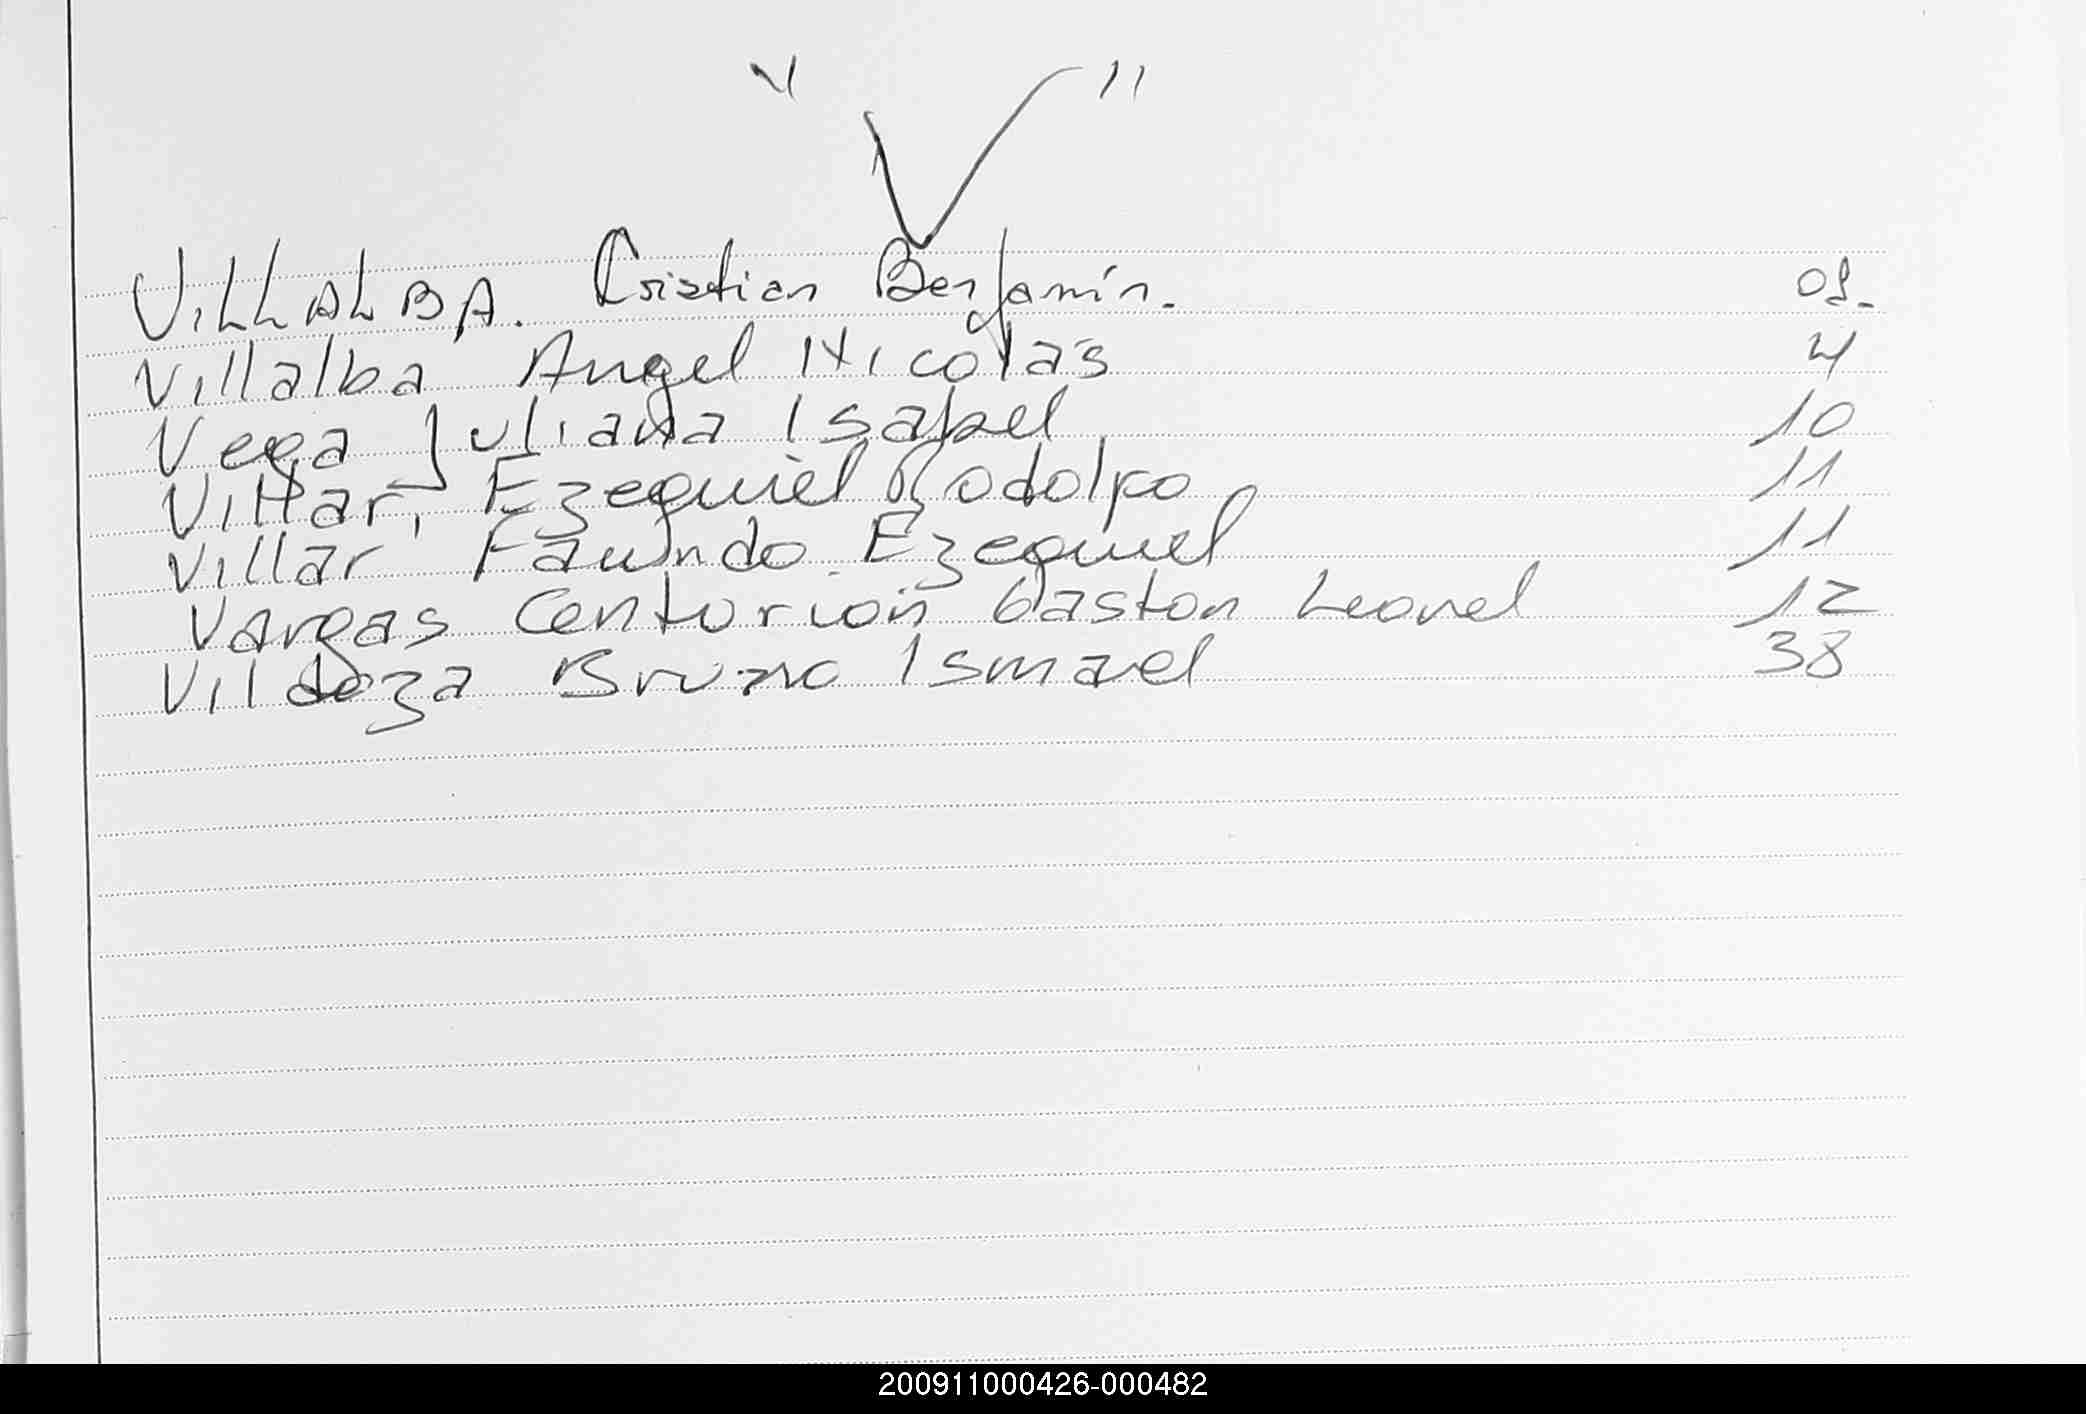 "V"
VILLALBA. Cristian Benjamín. 01.
Villalba Angel Nicolás 4
Vega Juliana Isabel 10
Villar, Ezequiel Rodolfo 11
Villar Faundo Ezequiel 11
Vargas Centurión Gaston Leonel 12
Vildoza Bruno Ismael 38
200911000426-000482